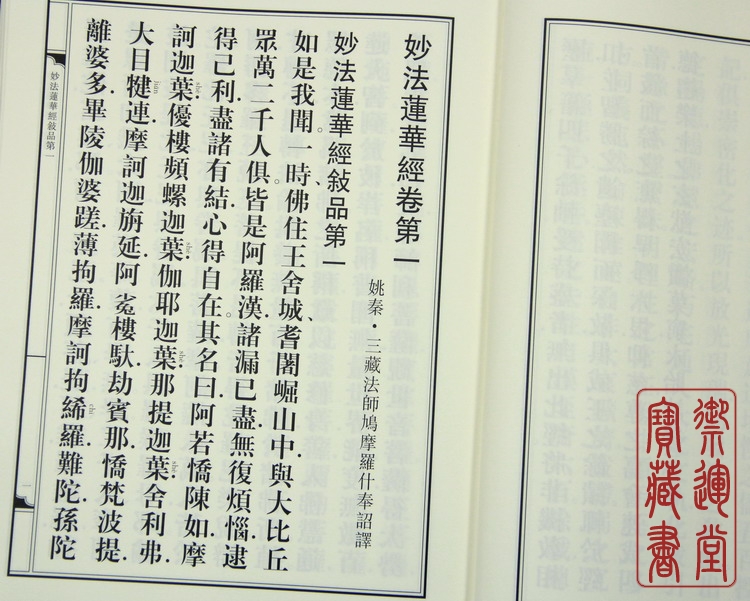 妙法蓮華經卷第一
姚秦・三藏法師鳩摩羅什奉詔譯
妙法蓮華經敍品第一
如是我聞。一時、佛住王舍城、耆闍崛山中、與大比丘
眾萬二千人俱。皆是阿羅漢、諸漏已盡、無復煩惱、逮
得己利、盡諸有結、心得自在。其名曰、阿若憍陳如、摩
訶迦葉、優樓頻螺迦葉、伽耶迦葉、那提迦葉、舍利弗、
大目犍連、摩訶迦旃延、阿㝹樓馱、劫賓那、憍梵波提、
離婆多、畢陵伽婆蹉、薄拘羅、摩訶拘絺羅、難陀、孫陀
妙法蓮華經敍品第一
一
運堂
寶藏書